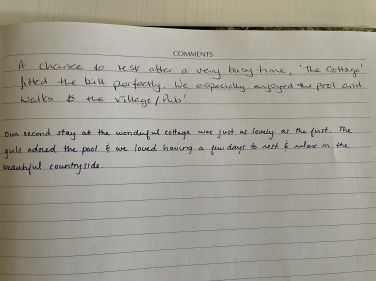 COMMENTS
A chance to rest after a very busy time, 'The Cottage'
fitted the bill perfectly. We especially enjoyed the pool and
walks to the village/Pub!
Our second stay at the wonderful cottage was just as lovely as the first. The
girls adored the pool & we loved having a few days to rest & relax in the
beautiful countryside.